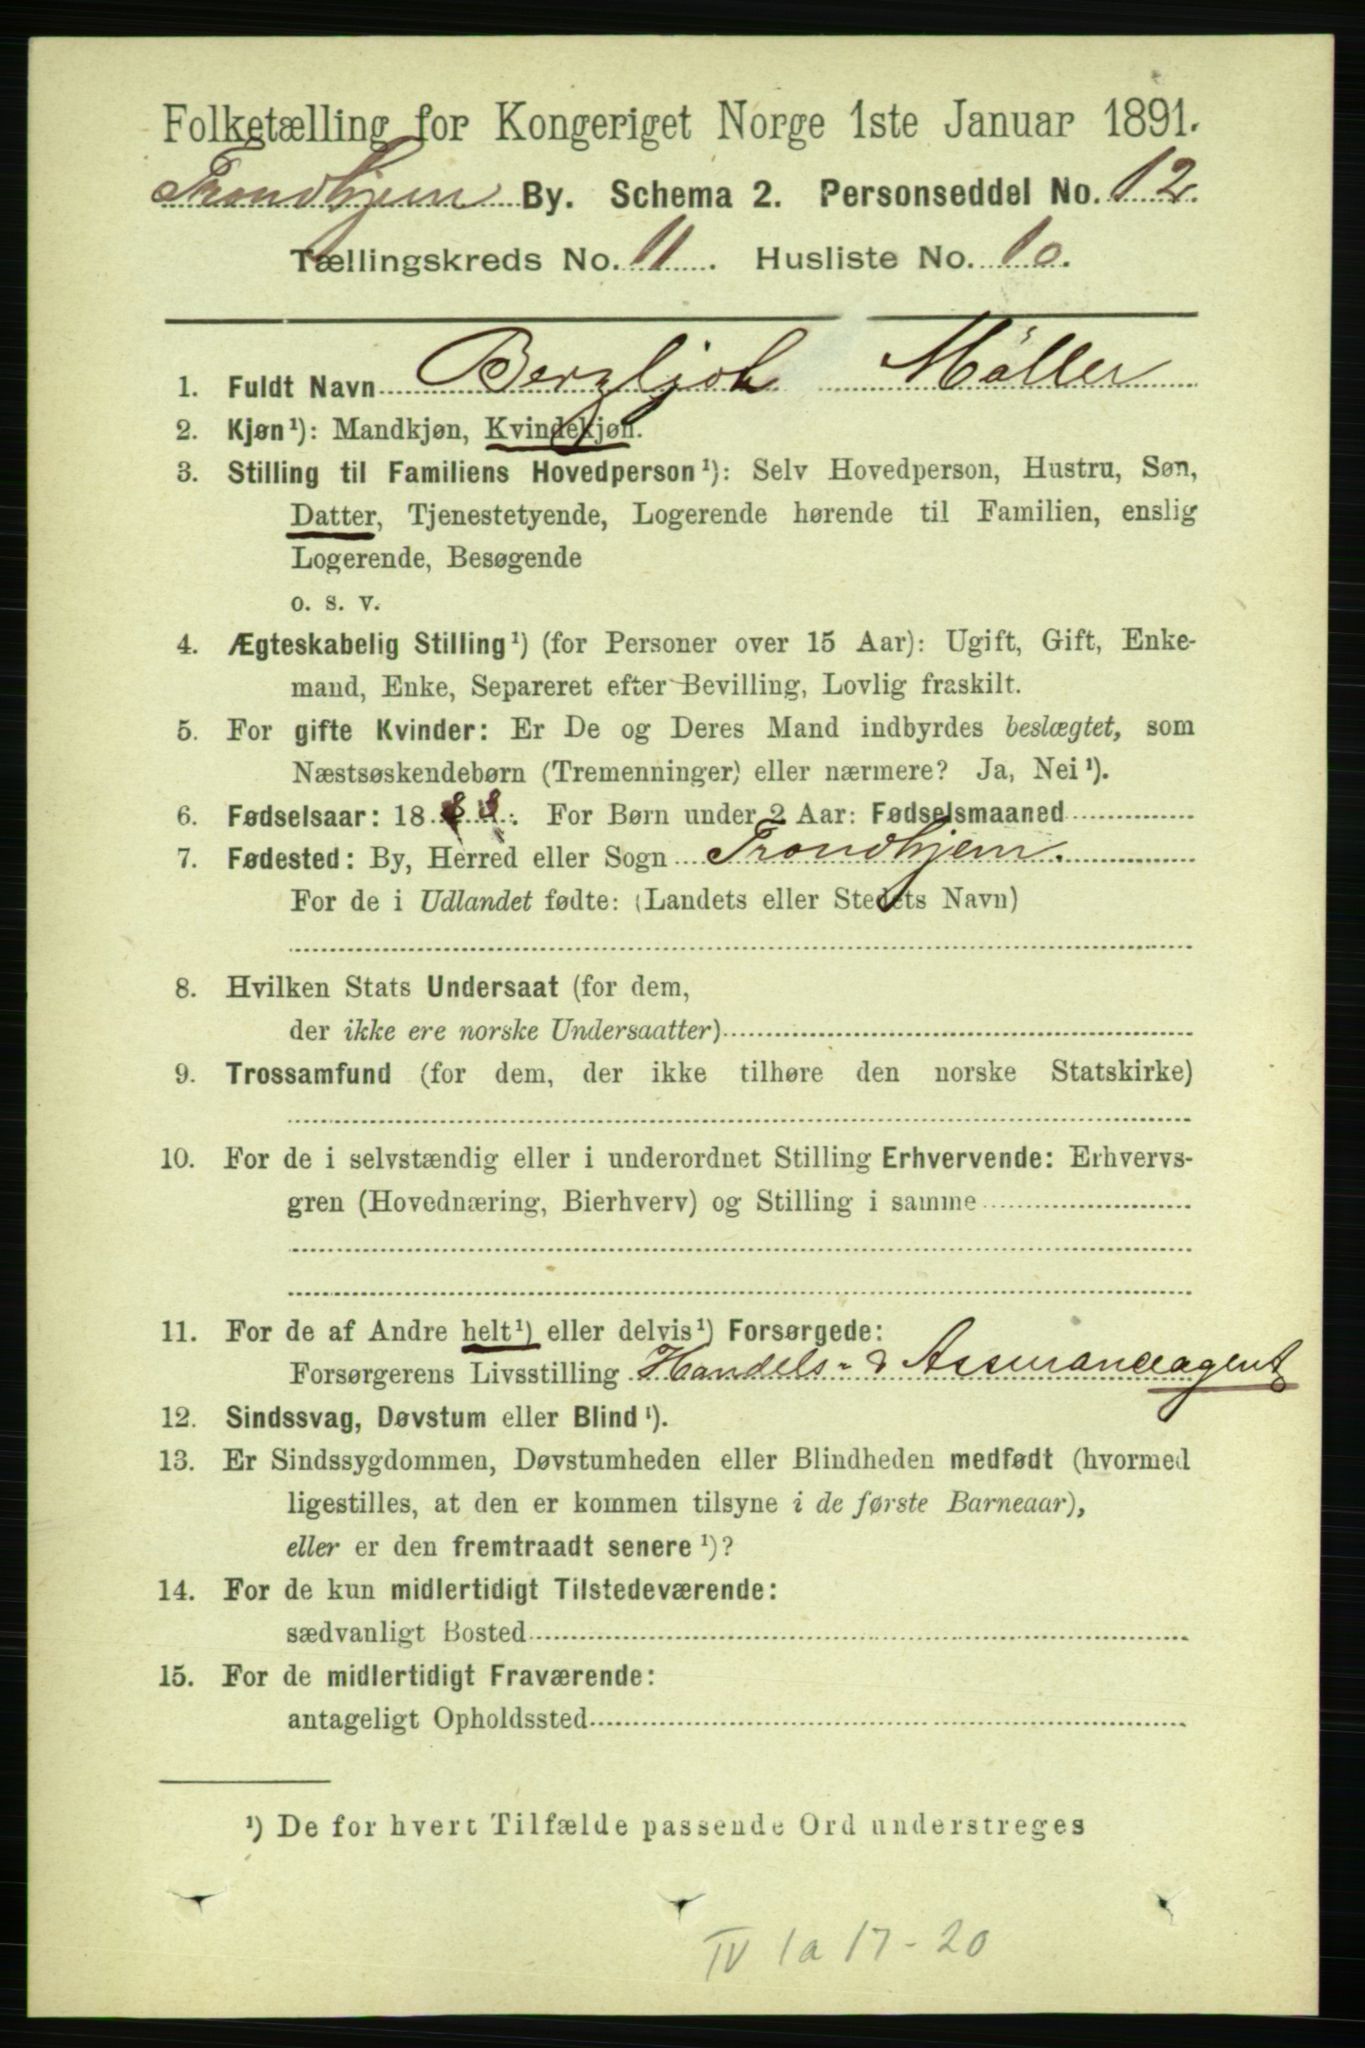 Folketælling for Kongeriget Norge 1ste Januar 1891.
Trondhjem By. Schema 2. Personseddel No. 12.
Tællingskreds No. 11. Husliste No. 10.
1. Fuldt Navn Bergljot Möller
2. Kjøn¹): Mandkjøn, Kvindekjøn.
3. Stilling til Familiens Hovedperson¹): Selv Hovedperson, Hustru, Søn,
Datter, Tjenestetyende, Logerende hørende til Familien, enslig
Logerende, Besøgende
o. s. v.
4. Ægteskabelig Stilling¹) (for Personer over 15 Aar): Ugift, Gift, Enke-
mand, Enke, Separeret efter Bevilling, Lovlig fraskilt.
5. For gifte Kvinder: Er De og Deres Mand indbyrdes beslægtet, som
Næstsøskendebørn (Tremenninger) eller nærmere? Ja, Nei¹).
6. Fødselsaar: 1888. For Børn under 2 Aar: Fødselsmaaned
7. Fødested: By, Herred eller Sogn Trondhjem.
For de i Udlandet fødte: (Landets eller Stedets Navn)
8. Hvilken Stats Undersaat (for dem,
der ikke ere norske Undersaatter)
9. Trossamfund (for dem, der ikke tilhøre den norske Statskirke)
10. For de i selvstændig eller i underordnet Stilling Erhvervende: Erhvervs-
gren (Hovednæring, Bierhverv) og Stilling i samme
11. For de af Andre helt¹) eller delvis¹) Forsørgede:
Forsørgerens Livsstilling Handels- & Assuranceagent
12. Sindssvag, Døvstum eller Blind¹).
13. Er Sindssygdommen, Døvstumheden eller Blindheden medfødt (hvormed
ligestilles, at den er kommen tilsyne i de første Barneaar),
eller er den fremtraadt senere¹)?
14. For de kun midlertidigt Tilstedeværende:
sædvanligt Bosted
15. For de midlertidigt Fraværende:
antageligt Opholdssted
¹) De for hvert Tilfælde passende Ord understreges
IV 1a 17-20